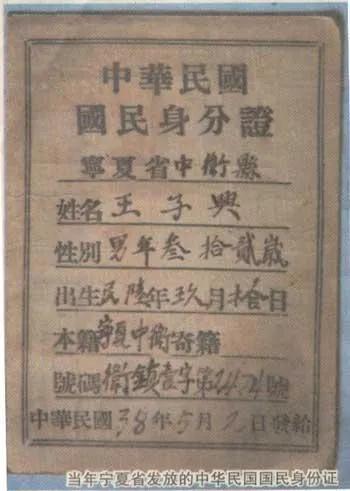 中華民國
國民身分證
寧夏省中衛縣
姓名王子興
性別男年叁拾貳歲
出生民陸年玖月拾日
本籍寧夏中衛寄籍
號碼衛鎮壹字第2474號
中華民國38年5月2日發給
当年宁夏省发放的中华民国国民身份证